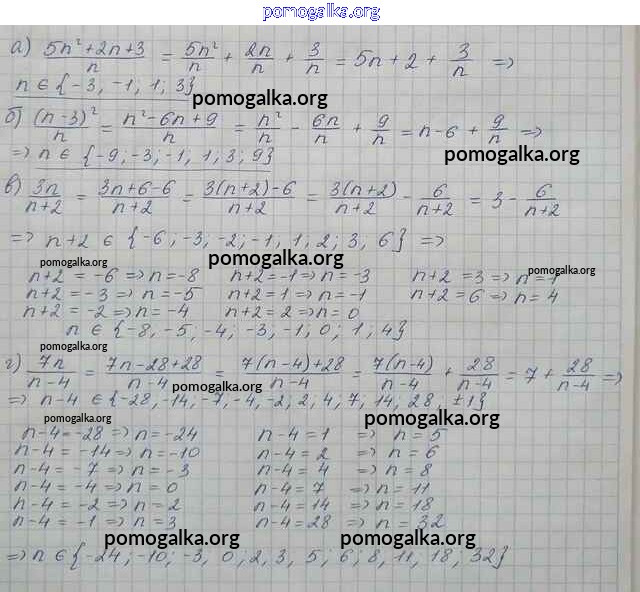 pomogalka.org
а) (5n²+2n+3)/n = 5n²/n + 2n/n + 3/n = 5n + 2 + 3/n ⇒
n ∈ {-3, -1; 1; 3}
pomogalka.org
б) (n-3)²/n = (n²-6n+9)/n = n²/n - 6n/n + 9/n = n-6 + 9/n ⇒
pomogalka.org
⇒ n ∈ {-9; -3; -1; 1; 3; 9}
в) 3n/(n+2) = (3n+6-6)/(n+2) = (3(n+2)-6)/(n+2) = 3(n+2)/(n+2) - 6/(n+2) = 3 - 6/(n+2)
⇒ n+2 ∈ {-6; -3; -2; -1, 1; 2; 3, 6} ⇒
pomogalka.org pomogalka.org pomogalka.org
n+2 = -6 ⇒ n = -8 n+2 = -1 ⇒ n = -3 n+2 = 3 ⇒ n = 1
n+2 = -3 ⇒ n = -5 n+2 = 1 ⇒ n = -1 n+2 = 6 ⇒ n = 4
n+2 = -2 ⇒ n = -4 n+2 = 2 ⇒ n = 0
n ∈ {-8, -5; -4; -3; -1; 0; 1; 4}
pomogalka.org
г) 7n/(n-4) = (7n-28+28)/(n-4) = (7(n-4)+28)/(n-4) = 7(n-4)/(n-4) + 28/(n-4) = 7 + 28/(n-4) ⇒
pomogalka.org
⇒ n-4 ∈ {-28, -14; -7, -4, -2; 2; 4; 7, 14, 28, ±1}
pomogalka.org pomogalka.org
n-4 = -28 ⇒ n = -24 n-4 = 1 ⇒ n = 5
n-4 = -14 ⇒ n = -10 n-4 = 2 ⇒ n = 6
n-4 = -7 ⇒ n = -3 n-4 = 4 ⇒ n = 8
n-4 = -4 ⇒ n = 0 n-4 = 7 ⇒ n = 11
n-4 = -2 ⇒ n = 2 n-4 = 14 ⇒ n = 18
n-4 = -1 ⇒ n = 3 n-4 = 28 ⇒ n = 32
pomogalka.org pomogalka.org
⇒ n ∈ {-24; -10; -3, 0, 2, 3, 5; 6; 8, 11, 18; 32}